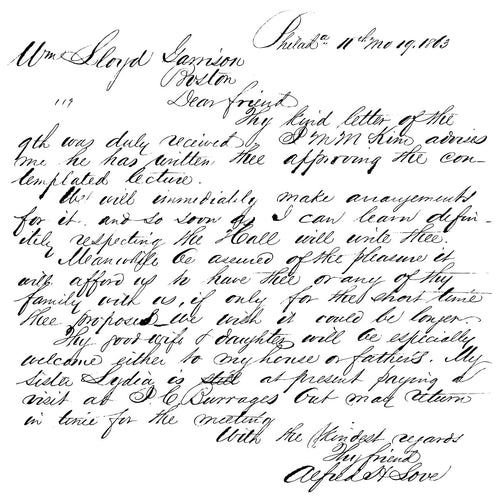 Philada 11th mo 19. 1863
Wm Lloyd Garrison
Boston
Dear friend
Thy kind letter of the
9th was duly received J M M Kim advises
me he has written thee approving the con-
templated lecture.
We will immediatly make arrangements
for it. and so soon as I can learn defin-
itely respecting the Hall will write thee.
Meanwhile be assured of the pleasure it
will afford us to have thee or any of thy
family with us, if only for the short time
thee proposes. We wish it could be longer.
Thy good wife & daughter will be especially
welcome either to my house or father's. My
Sister Lydia is still at present paying a
visit at J C Burrages but may return
in time for the meeting
With the kindest regards
Thy friend
Alfred H Love